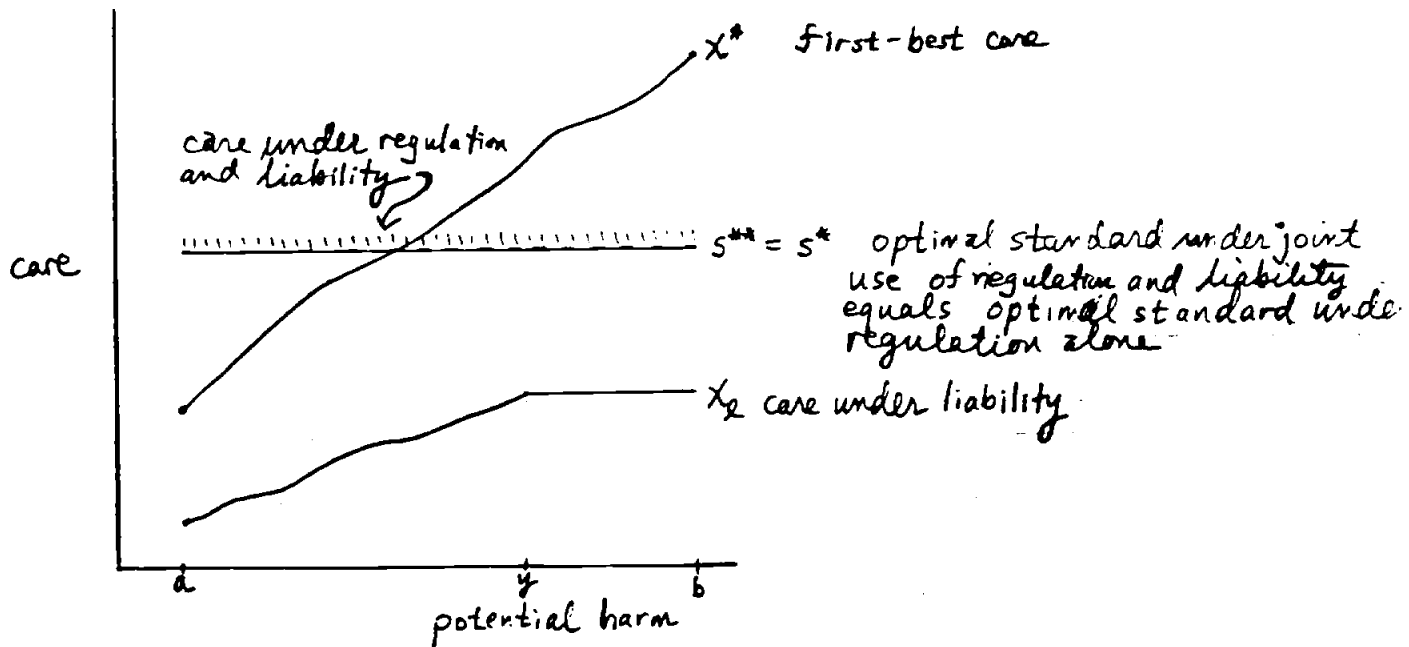 x* first-best care
care under regulation
and liability
care
s** = s* optimal standard under joint
use of regulation and liability
equals optimal standard unde
regulation alone
xℓ care under liability
a
y
b
potential harm